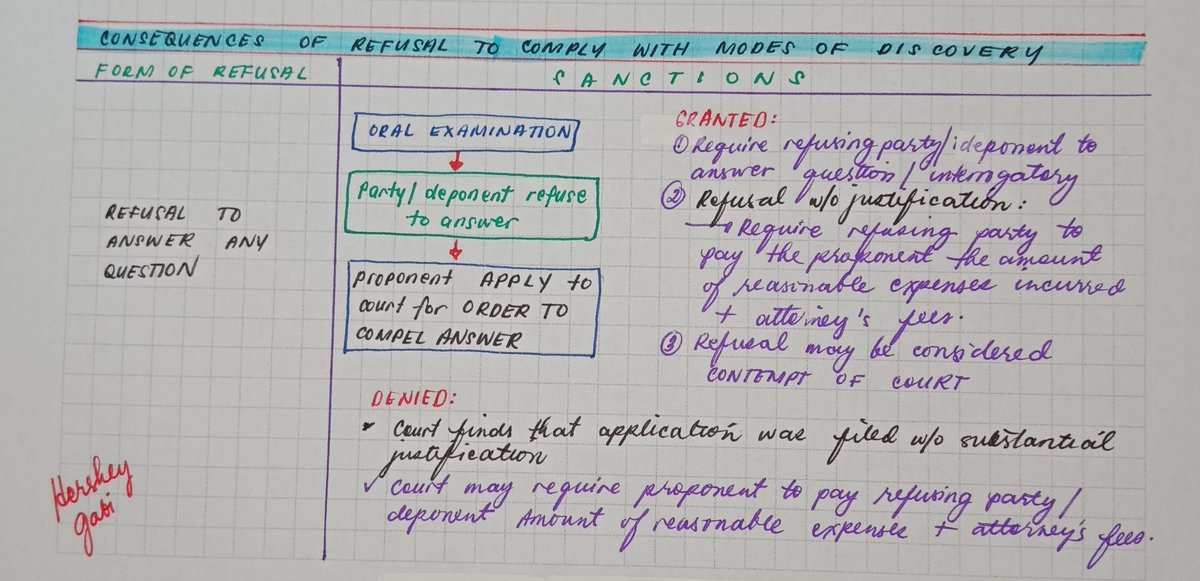 CONSEQUENCES OF REFUSAL TO COMPLY WITH MODES OF DISCOVERY
FORM OF REFUSAL
SANCTIONS
REFUSAL TO
ANSWER ANY
QUESTION
ORAL EXAMINATION
Party/deponent refuse
to answer
proponent APPLY to
court for ORDER TO
COMPEL ANSWER
GRANTED:
① Require refusing party/deponent to
answer question/interrogatory
② Refusal w/o justification:
→ Require refusing party to
pay the proponent the amount
of reasonable expenses incurred
+ attorney's fees.
③ Refusal may be considered
CONTEMPT OF COURT
DENIED:
* Court finds that application was filed w/o substantial
justification
✓ Court may require proponent to pay refusing party/
deponent Amount of reasonable expenses + attorney's fees.
Hershey
gabi